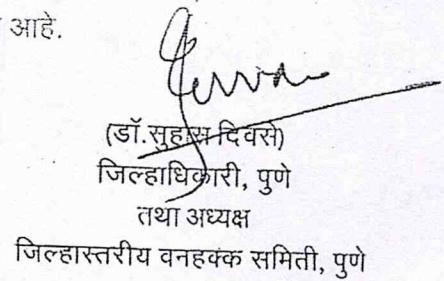 आहे.
(डॉ.सुहास दिवसे)
जिल्हाधिकारी, पुणे
तथा अध्यक्ष
जिल्हास्तरीय वनहक्क समिती, पुणे